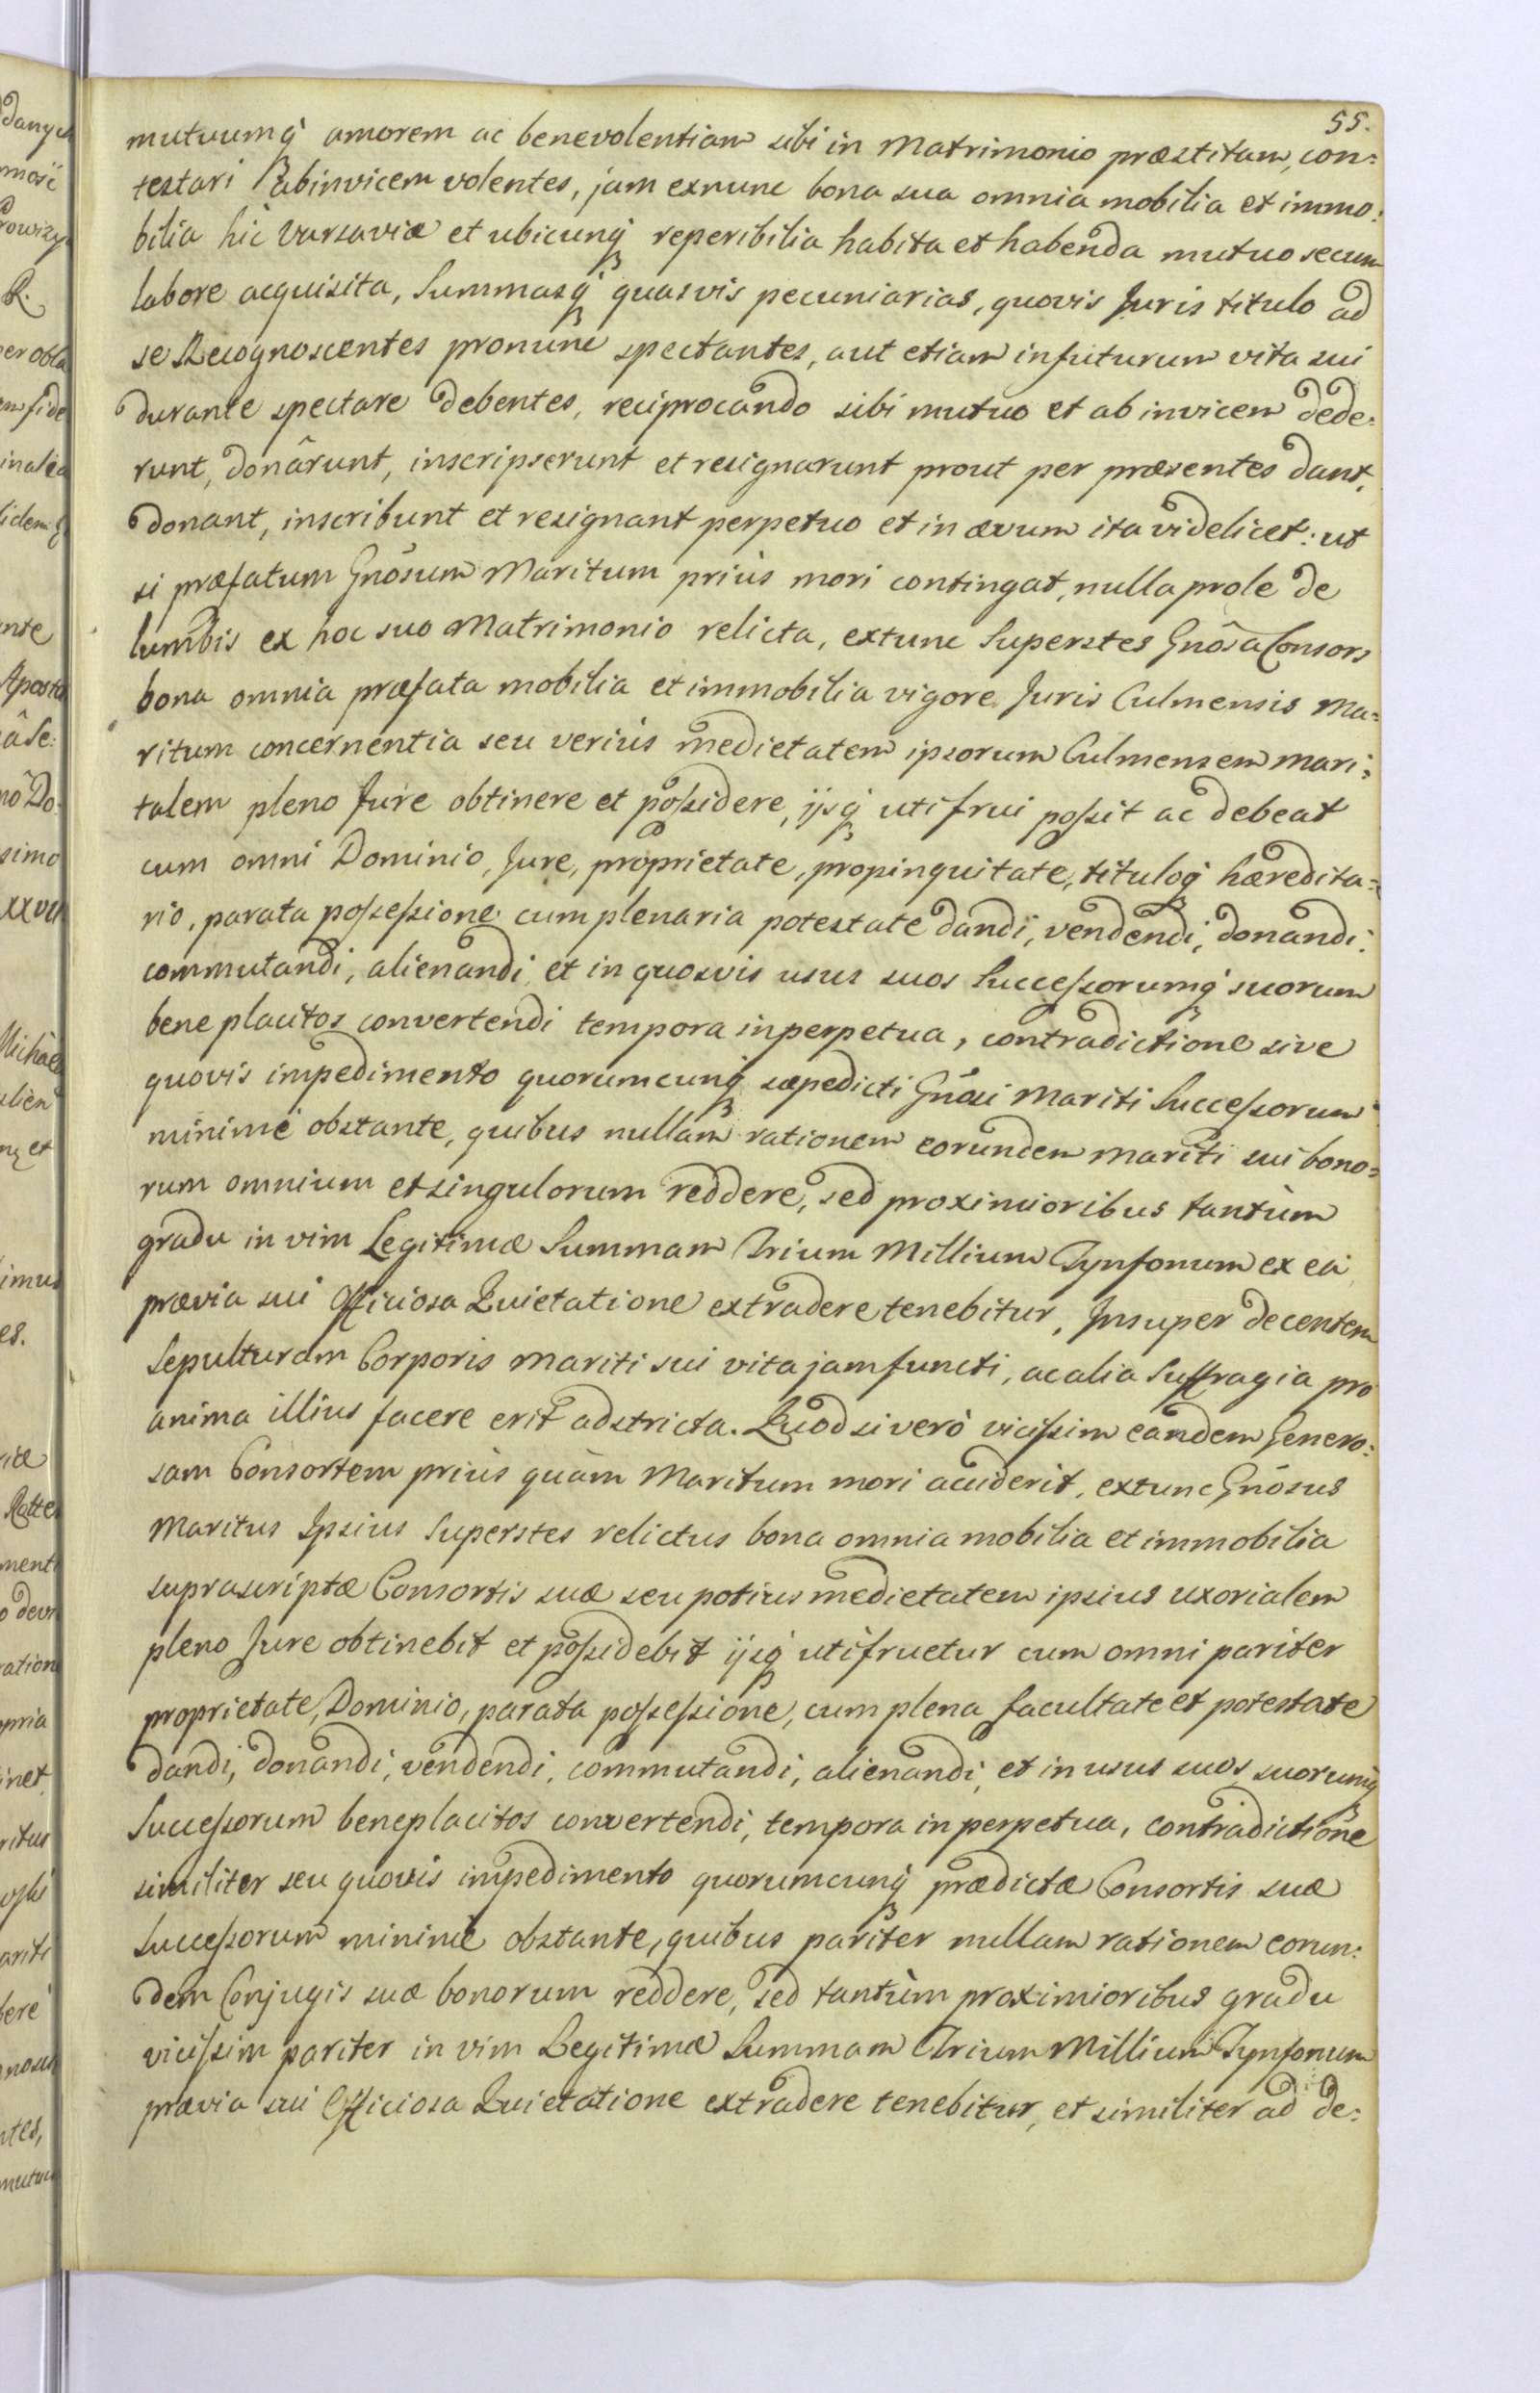 55.
mutuumq́ amorem ac benevolentiam sibi in Matrimonio præstitam, con:
testari abinvicem volentes, jam exnunc bona sua omnia mobilia et immo:
bilia hic Varsaviæ et ubicunq́ reperibilia habita et habenda mutuo secum
labore acquisita, Summasq́ quasvis pecuniarias, quovis Juris titulo ad
se Recognoscentes pronunc spectantes, aut etiam infuturum vita sui
durante spectare debentes, reciprocando sibi mutuo et ab invicem dede:
runt, donârunt, inscripserunt et resignarunt prout per præsentes dant,
donant, inscribunt et resignant perpetuo et in ævum ita videlicet: ut
si præfatum Gnôsum Maritum priùs mori contingat, nulla prole de
lumbis ex hoc suo Matrimonio relicta, extunc Superstes Gnôsa Consors
bona omnia præfata mobilia et immobilia vigore Juris Culmensis Ma:
ritum concernentia seu veriùs medietatem ipsorum Culmensem mari:
talem pleno Jure obtinere et possidere, ijsq́ utifrui possit ac debeat
cum omni Dominio, Jure, proprietate, propinquitate, tituloq́ hæredita:
rio, parata possessione cum plenaria potestate dandi, vendendi, donandi,
commutandi, alienandi et in quosvis usus suos Successorumq́ suorum
bene placitos convertendi tempora inperpetua, contradictione sive
quovis impedimento quorumcunq́ sæpedicti Gnôsi Mariti Successorum
minimè obstante, quibus nullam rationem eorundem mariti sui bono:
rum omnium et singulorum reddere, sed proximioribus tantùm
gradu in vim Legitimæ Summam Trium Millium Tynfonum ex ea
prævia sui Officiosa Quietatione extradere tenebitur, Insuper decentem
Sepulturam Corporis Mariti sui vita jamfuncti, ac alia Suffragia pro
anima illius facere erit adstricta. Quod si verò vicissim eandem Genero:
sam Consortem priùs quàm Maritum mori acciderit, extunc Gnôsus
Maritus Ipsius Superstes relictus bona omnia mobilia et immobilia
suprascriptæ Consortis suæ seu potius medietatem ipsius uxorialem
pleno Jure obtinebit et possidebit ijsq́ utifruetur cum omni pariter
proprietate, Dominio, parata possessione, cum plena facultate et potestate
dandi, donandi, vendendi, commutandi, alienandi, et in usus suos, suorumq́
Successorum beneplacitos convertendi, tempora in perpetua, contradictione
similiter seu quovis impedimento quorumcunq́ prædictæ Consortis suæ
Successorum minimè obstante, quibus pariter nullam rationem eorun:
dem Conjugis suæ bonorum reddere, sed tantùm proximioribus gradu
vicissim pariter in vim Legitimæ Summam Trium Millium Tynfonum
prævia sui Officiosa Quietatione extradere tenebitur, et similiter ad de: